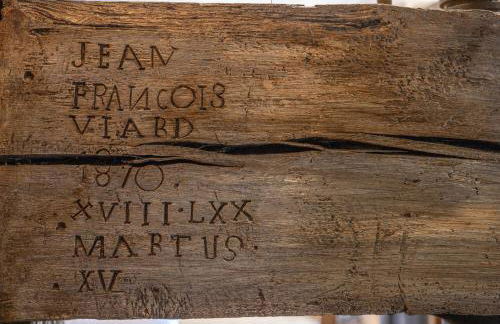 JEAN
FRANCOIS
VIARD
1870.
XVIII·LXX
MARTUS·
XV